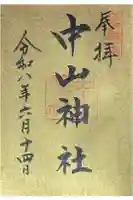 奉拝
中山神社
令和八年六月十四日